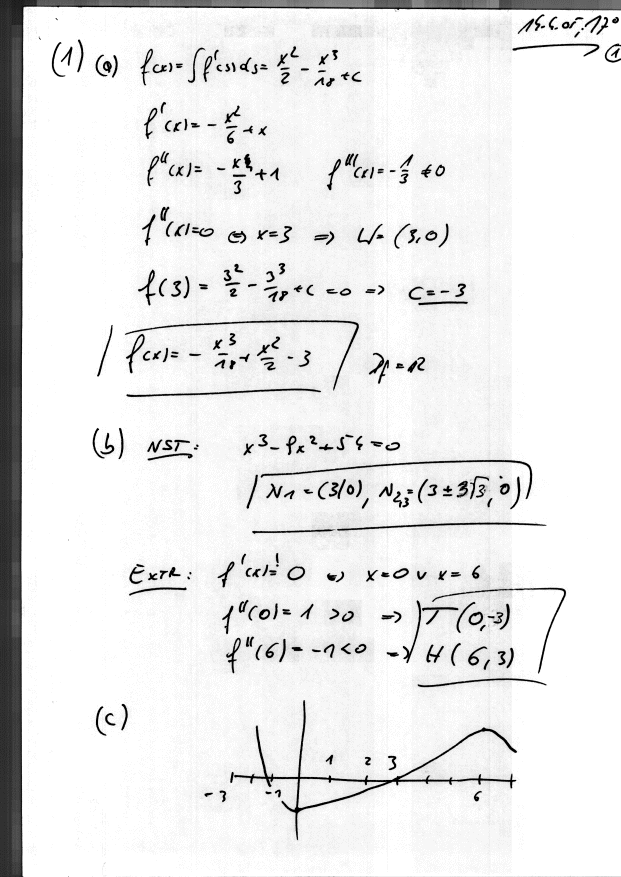 (1) (a) f(x) = ∫f'(s)ds = x²/2 - x³/18 + c
f'(x) = - x²/6 + x
f''(x) = - x/3 + 1 f'''(x) = - 1/3 ≠ 0
f''(x) = 0 ⇔ x = 3 ⇒ W = (3,0)
f(3) = 3²/2 - 3³/18 + c = 0 ⇒ c = -3
f(x) = - x³/18 + x²/2 - 3 Df = R
(b) NST: x³ - 9x² + 54 = 0
N1 = (3/0), N2,3 = (3 ± 3√3, 0)
EXTR: f'(x) =! 0 ⇔ x = 0 v x = 6
f''(0) = 1 > 0 ⇒ T (0,-3)
f''(6) = -1 < 0 ⇒ H (6,3)
(c)
1 2 3
-3 -1 6